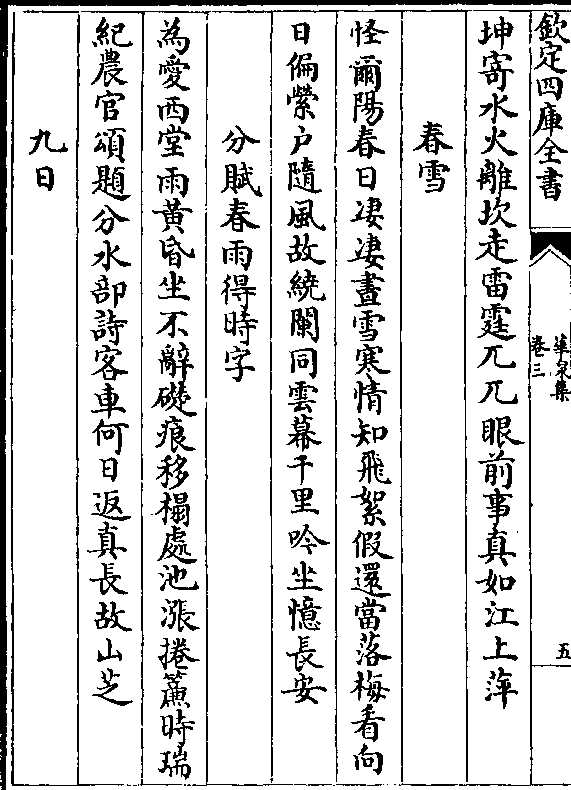 欽定四庫全書
華泉集
卷三
五
坤寄水火離坎走雷霆兀兀眼前事真如江上萍
春雪
怪爾陽春日凄凄晝雪寒情知飛絮假還當落梅看向
日偏縈户隨風故繞闌同雲幕千里吟坐憶長安
分賦春雨得時字
為愛西堂雨黃昏坐不辭礎痕移榻處池漲捲簾時瑞
紀農官頌題分水部詩客車何日返真長故山芝
九日